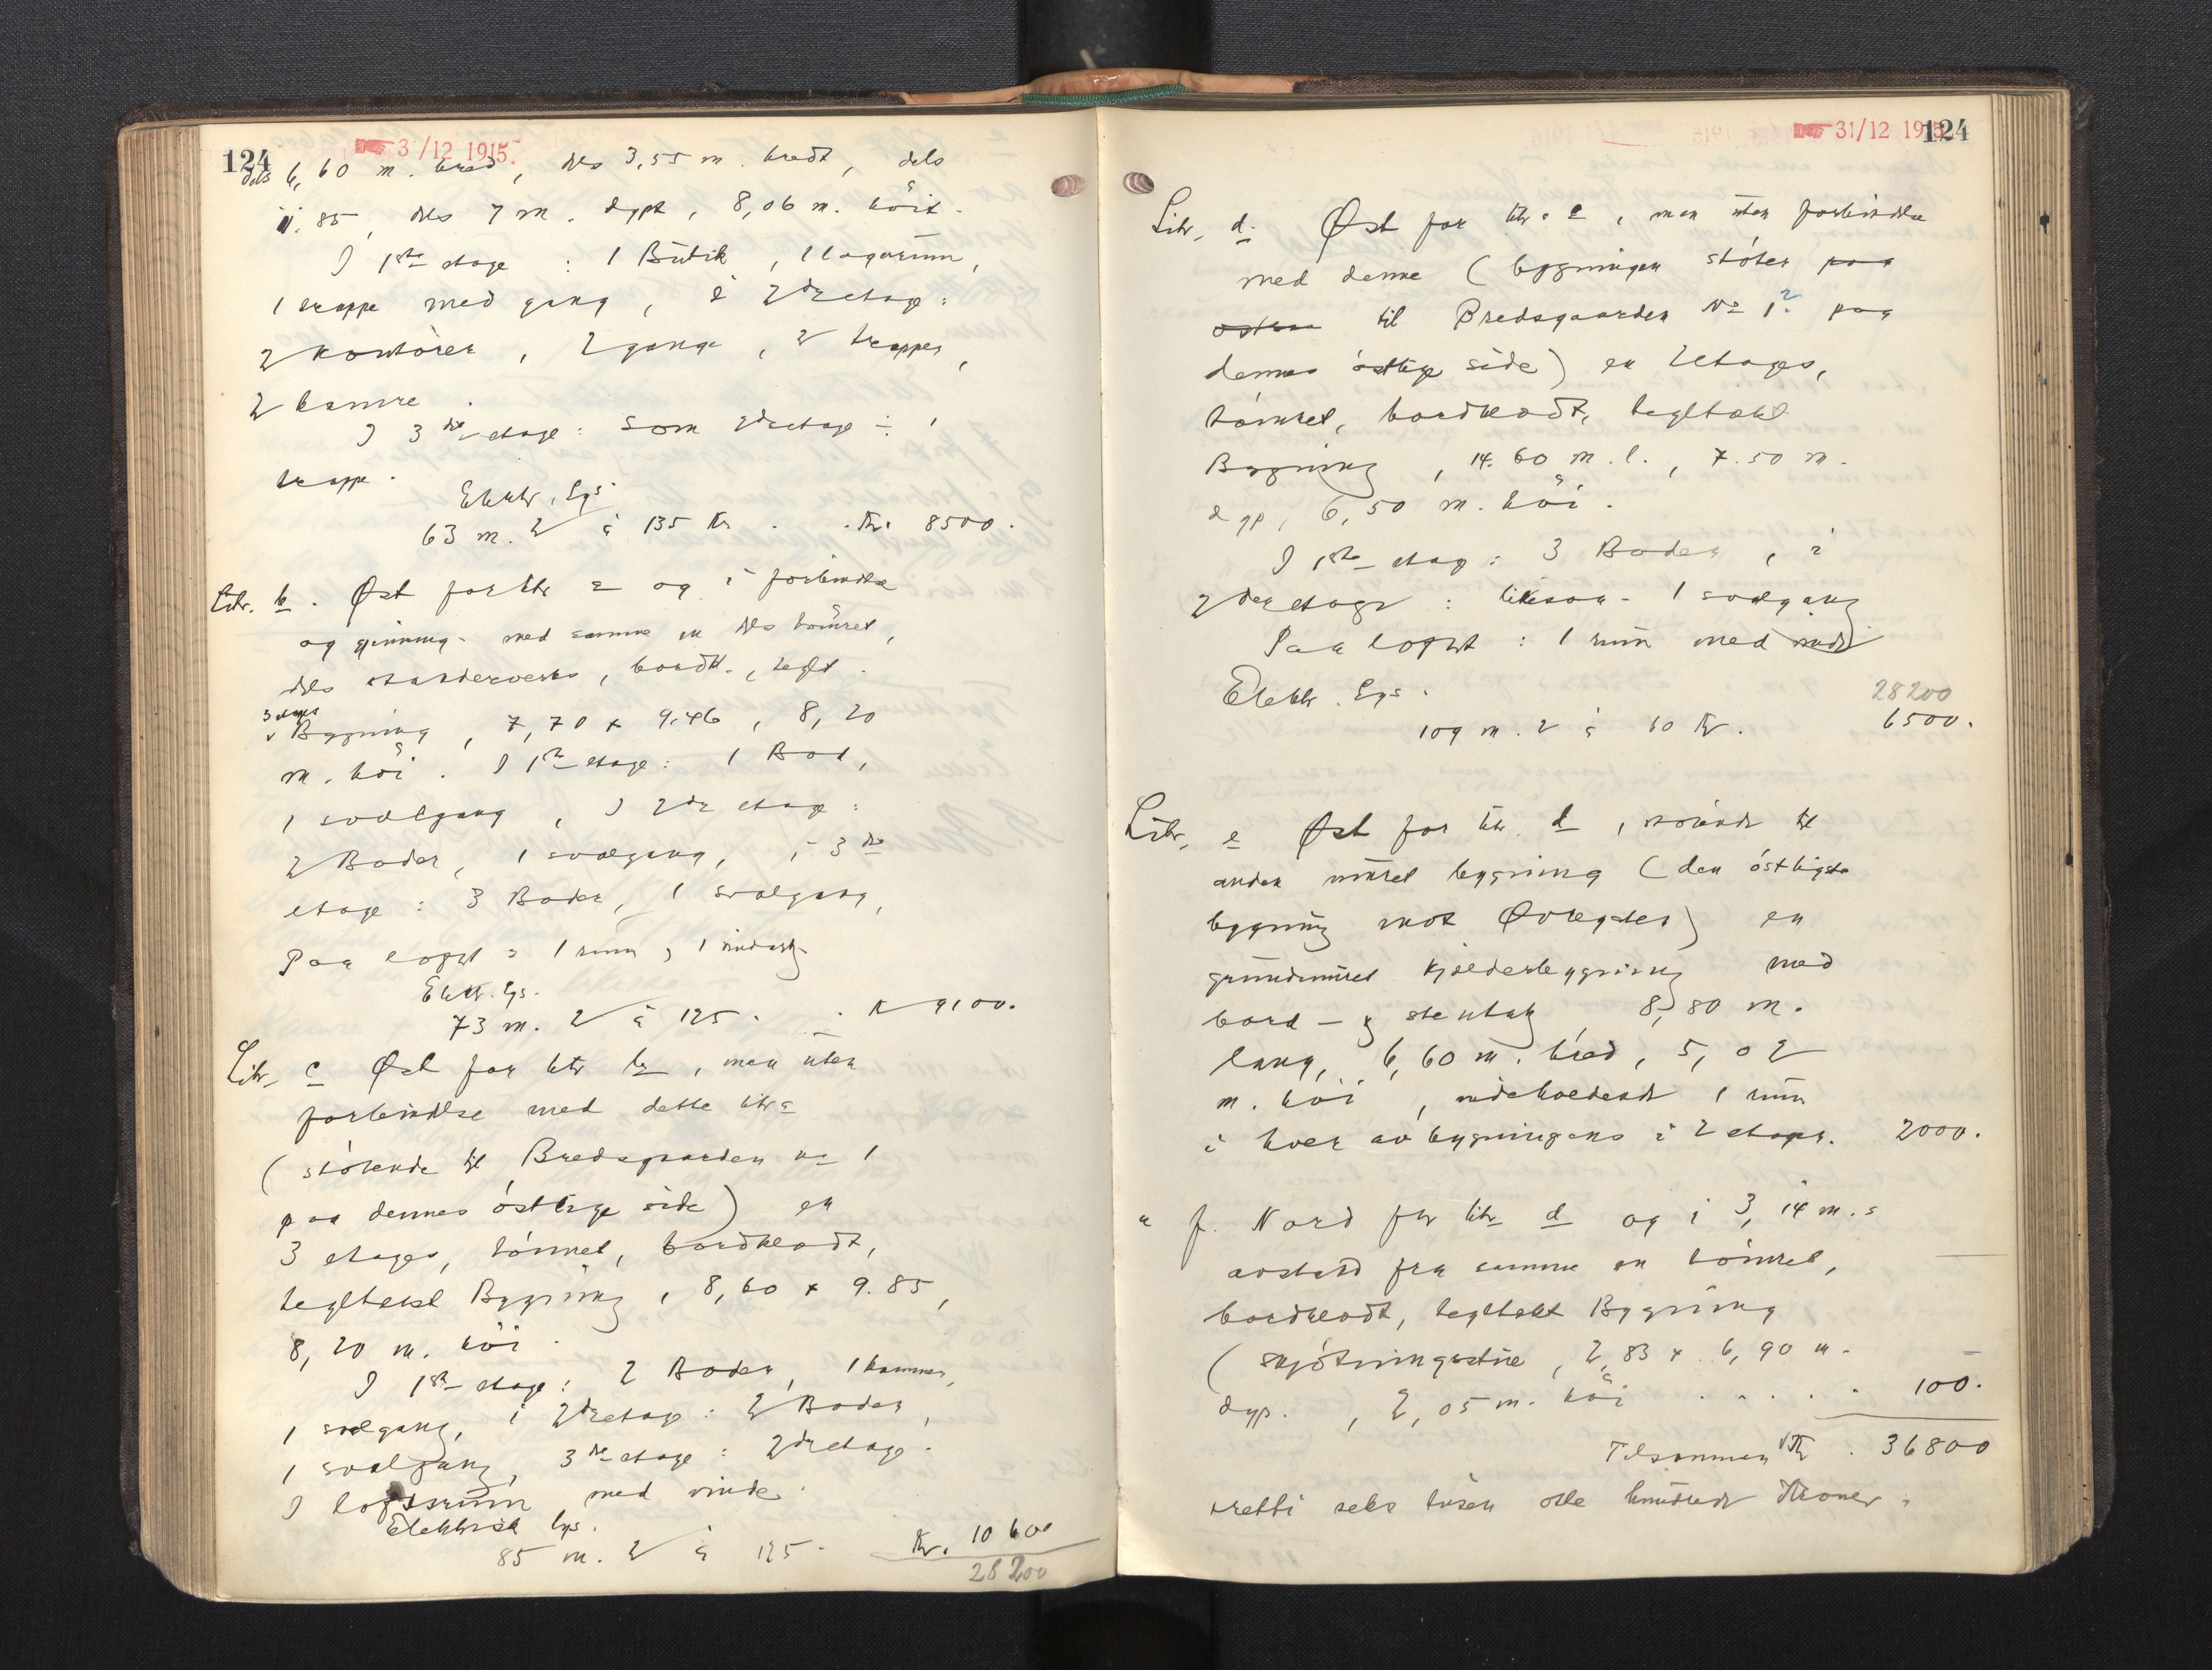 124
31/12 1915.
dels 6,60 m. bred, dels 3,55 m. bredt, dels
11.85, dels 7 m. dypt, 8,06 m. höit.
I 1ste etage : 1 Butik, 1 lagerrum,
1 trappe med gang, i 2den etage:
2 kontorer, 2 gange, 2 trapper,
2 kamre.
I 3die etage: som 2den etage ÷ 1
trappe.
Elektr. lys
63 m. 2 à 135 Kr. . Kr. 8500.
Litr. b. Øst for litr a og i forbindelse
og med samme en dels tömret,
dels standerverks, bordkl., teglt.
3 etages
Bygning, 7,70 x 9.46, 8,20
m. höi. I 1ste etage: 1 Bod,
1 svalgang, I 2den etage:
2 Boder, 1 svalgang, i 3die
etage: 3 Boder, 1 svalgang,
Paa loftet: 1 rum,
Elektr. lys.
73 m. 2 à 125. . Kr 9100.
Litr. c Øst for litr b, men uten
forbindelse med dette litra
(stötende til Bredsgaarden no 1
paa dennes östlige side) en
3 etages, tömret, bordklædt,
tegltækt Bygning, 8,60 x 9.85,
8,20 m. höi.
I 1ste etage: 2 Boder, 1 kammer,
1 svalgang, i 2den etage: 2 Boder,
1 svalgang, 3die etage: 2den etage.
I loftsrum med vinde.
Elektrisk lys.
85 m. 2 à 125. Kr. 10600
28200
31/12 1915
124
Litr. d. Øst for litr. c, men uten forbindelse
med denne (bygningen stöter paa
östre til Bredsgaarden No 1? paa
dennes östlige side) en 2 etages,
tömret, bordklædt, tegltækt
Bygning, 14.60 m. l., 7.50 m.
dyp, 6,50 m. höi.
I 1ste etag: 3 Boder, i
2den etage: likesaa - 1 svalgang
Paa loftet: 1 rum med vinde
Elektr. lys.
28200
109 m. 2 à 60 Kr. 6500.
Litr. e Øst for litr. d, stötende til
anden muret bygning (den östligste
bygning mot Øvregaten) en
grundmuret kjælderbygning med
bord- og stentak 8,80 m.
lang, 6,60 m. bred, 5,02
m. höi, indeholdende 1 rum
i hver av bygningens 2 etager. 2000.
" f. Nord for litr d og i 3,14 m.s
avstand fra samme en tömret,
bordklædt, tegltækt Bygning
(Skjötningsstue, 2,83 x 6,90 m.
dyp., 2,05 m. höi . . . . . 100.
Tilsammen Kr. 36800
tretti seks tusen otte hundrede Kroner.